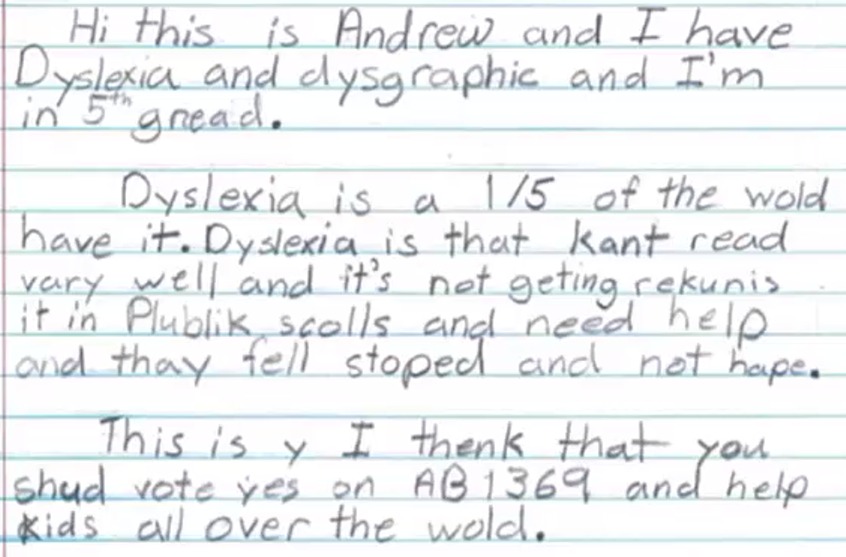 Hi this is Andrew and I have
Dyslexia and dysgraphic and I'm
in 5th gread.
Dyslexia is a 1/5 of the wold
have it. Dyslexia is that kant read
vary well and it's not geting rekunis
it in Plublik scolls and need help
and thay fell stoped and not hape.
This is y I thenk that you
shud vote yes on AB1369 and help
kids all over the wold.